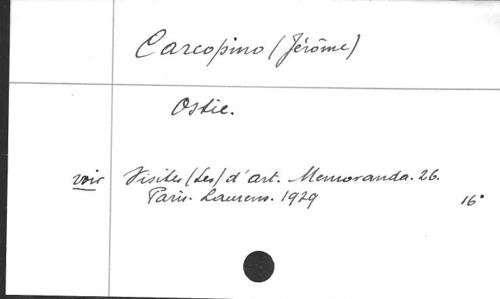 Carcopino (Jérôme)
Ostie.
voir Visites (Les) d'art. Memoranda. 26.
Paris. Laurens. 1929 16°